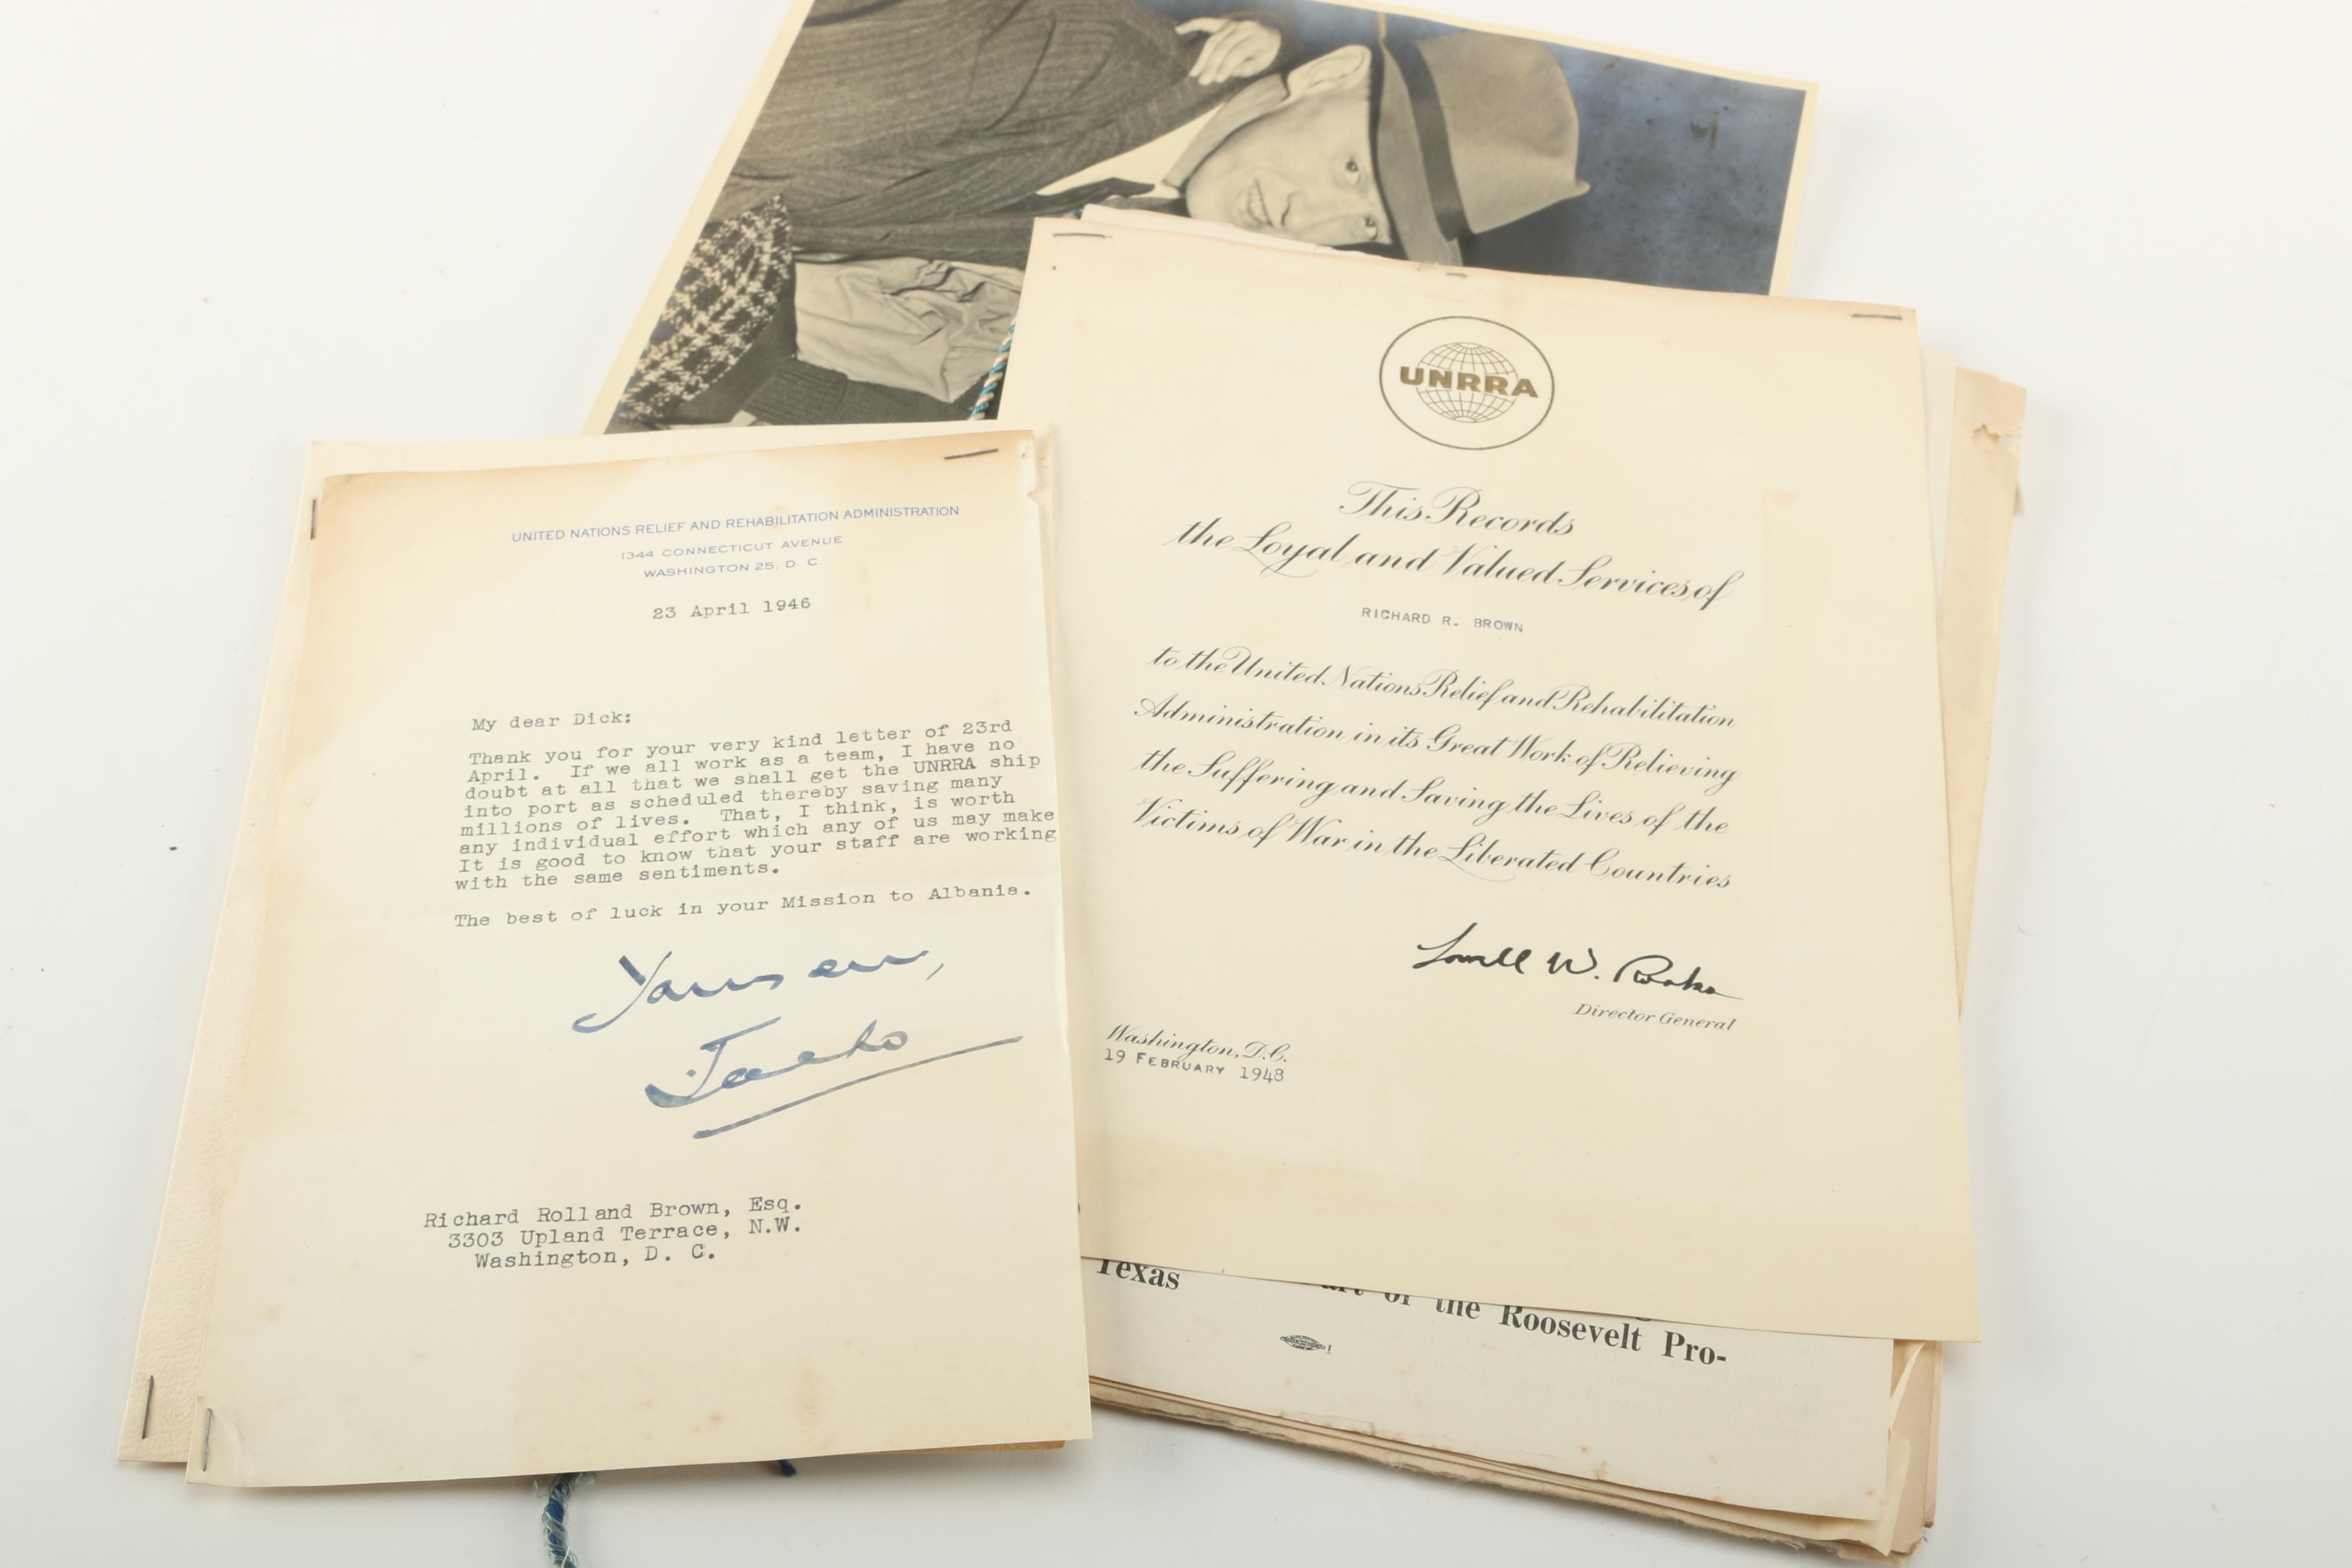 UNITED NATIONS RELIEF AND REHABILITATION ADMINISTRATION
1344 CONNECTICUT AVENUE
WASHINGTON 25, D. C.
23 April 1946
My dear Dick:
Thank you for your very kind letter of 23rd
April. If we all work as a team, I have no
doubt at all that we shall get the UNRRA ship
into port as scheduled thereby saving many
millions of lives. That, I think, is worth
any individual effort which any of us may make
It is good to know that your staff are working
with the same sentiments.
The best of luck in your Mission to Albania.
Yours ever,
Richard Rolland Brown, Esq.
3303 Upland Terrace, N.W.
Washington, D. C.
UNRRA
This Records
the Loyal and Valued Services of
RICHARD R. BROWN
to the United Nations Relief and Rehabilitation
Administration in its Great Work of Relieving
the Suffering and Saving the Lives of the
Victims of War in the Liberated Countries
Lowell W. Rooks
Director General
Washington, D.C.
19 FEBRUARY 1948
Texas
of the Roosevelt Pro-